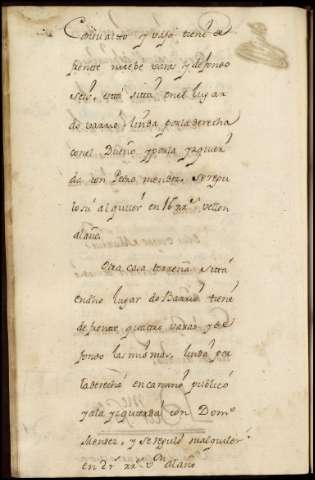 Con su alto y vajo tiene de
frente nuebe varas y de fondo
seis, esta sitta en el lugar
do varrio linda por la derecha
con el Dueño y por la yzquier
da con Pedro mendez, se regu
lo su alquiler en 16 rrs. vellon
al año.
Otra casa terrena sitta
en dho lugar do Barrio tiene
de frente quattro varas y de
fondo las mismas, linda por
la derecha en camino publico
y a la yzquierda con Domo
Mendez, y se regulo su alquiler
en 2 rrs. von al año